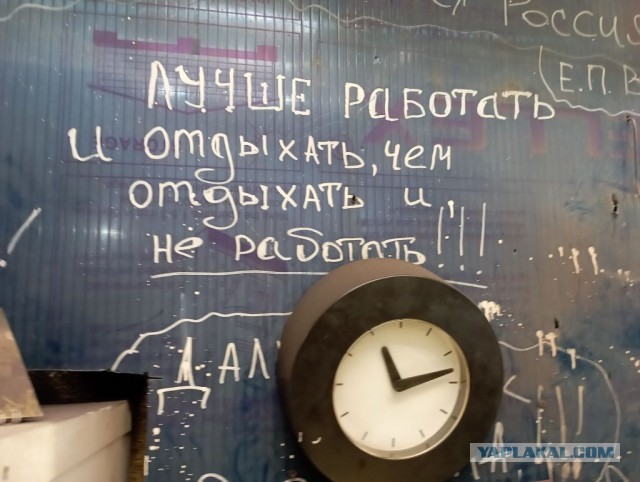 Россия
Е.П.В
ЛУЧШЕ работать
и отдыхать, чем
отдыхать и
не работать!!!
YAPLAKAL.COM